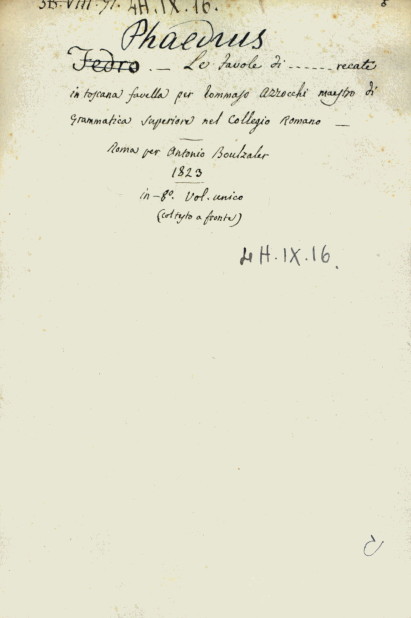 3B.VIII.71. 4H.IX.16.
Phaedrus
Fedro. — Le Favole di ------ recate
in toscana favella per Tommaso Azzocchi maestro di
Grammatica superiore nel Collegio Romano —
Roma per Antonio Boulzaler
1823
in-8º. Vol. unico
(col testo a fronte)
4H.IX.16.